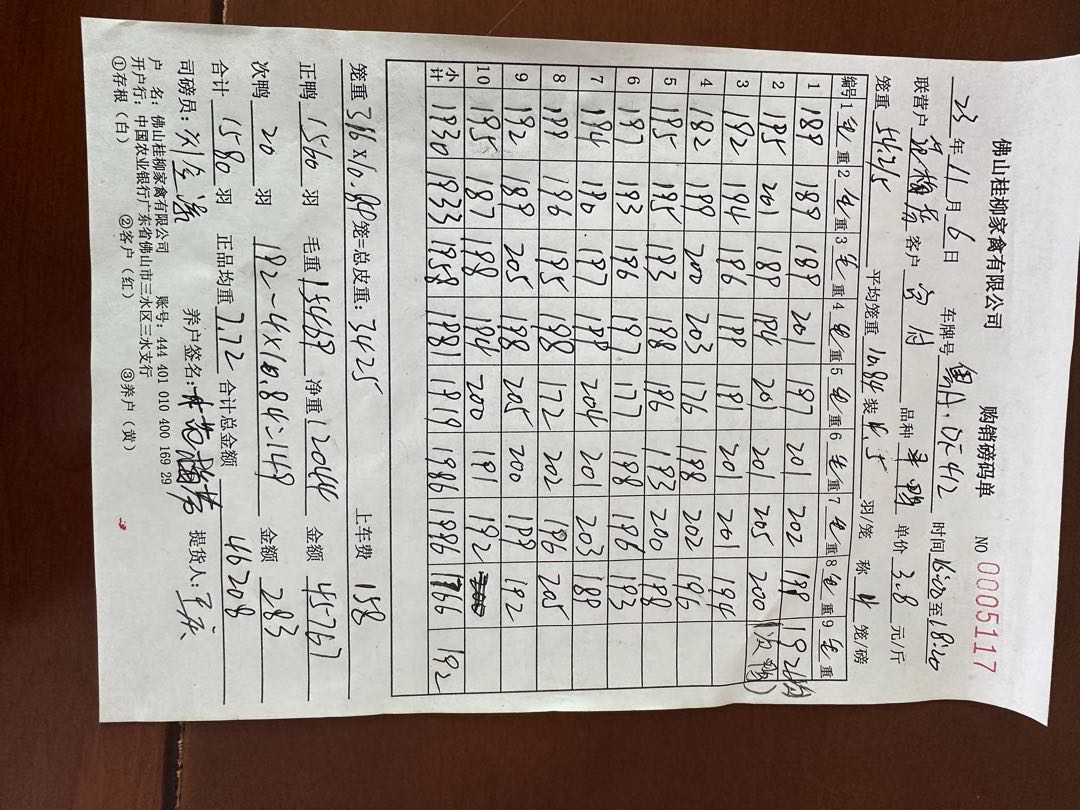 佛山桂柳家禽有限公司 购销磅码单 NO 0005117
23年11月6日 车牌号 时间 至18:40
联营户 客户 品种 单价3.8元/斤
笼重5425 平均笼重10.84装4.5羽/笼 称4笼/磅
编号 1毛重 2毛重 3毛重 4毛重 5毛重 6毛重 7毛重 8毛重 9毛重
1 189 189 189 201 197 201 202 199 192
2 195 201 189 201 201 205 200 (次鸭)
3 192 194 196 199 191 201 201 194
4 182 199 200 203 176 198 202 196
5 195 195 193 198 186 193 200 198
6 197 193 196 197 177 198 196 193
7 184 190 197 199 204 201 203 188
8 199 196 195 198 172 202 196 205
9 192 189 205 198 205 200 199 192
10 195 187 198 194 200 191 192
小计 1930 1933 1958 1981 1919 1986 1996 1766 192
笼重316×10.84笼=总皮重:3425 上车费 158
正鸭 1560 羽 毛重15469 净重12044 金额 45767
次鸭 20 羽 192-4×10.84=149 金额 283
合计 1580 羽 正品均重7.72 合计总金额 46208
司磅员: 养户签名: 提货人:
户 名: 佛山桂柳家禽有限公司 账号: 444 401 010 400 169 29
开户行: 中国农业银行广东省佛山市三水区三水支行
①存根(白) ②客户(红) ③养户(黄)